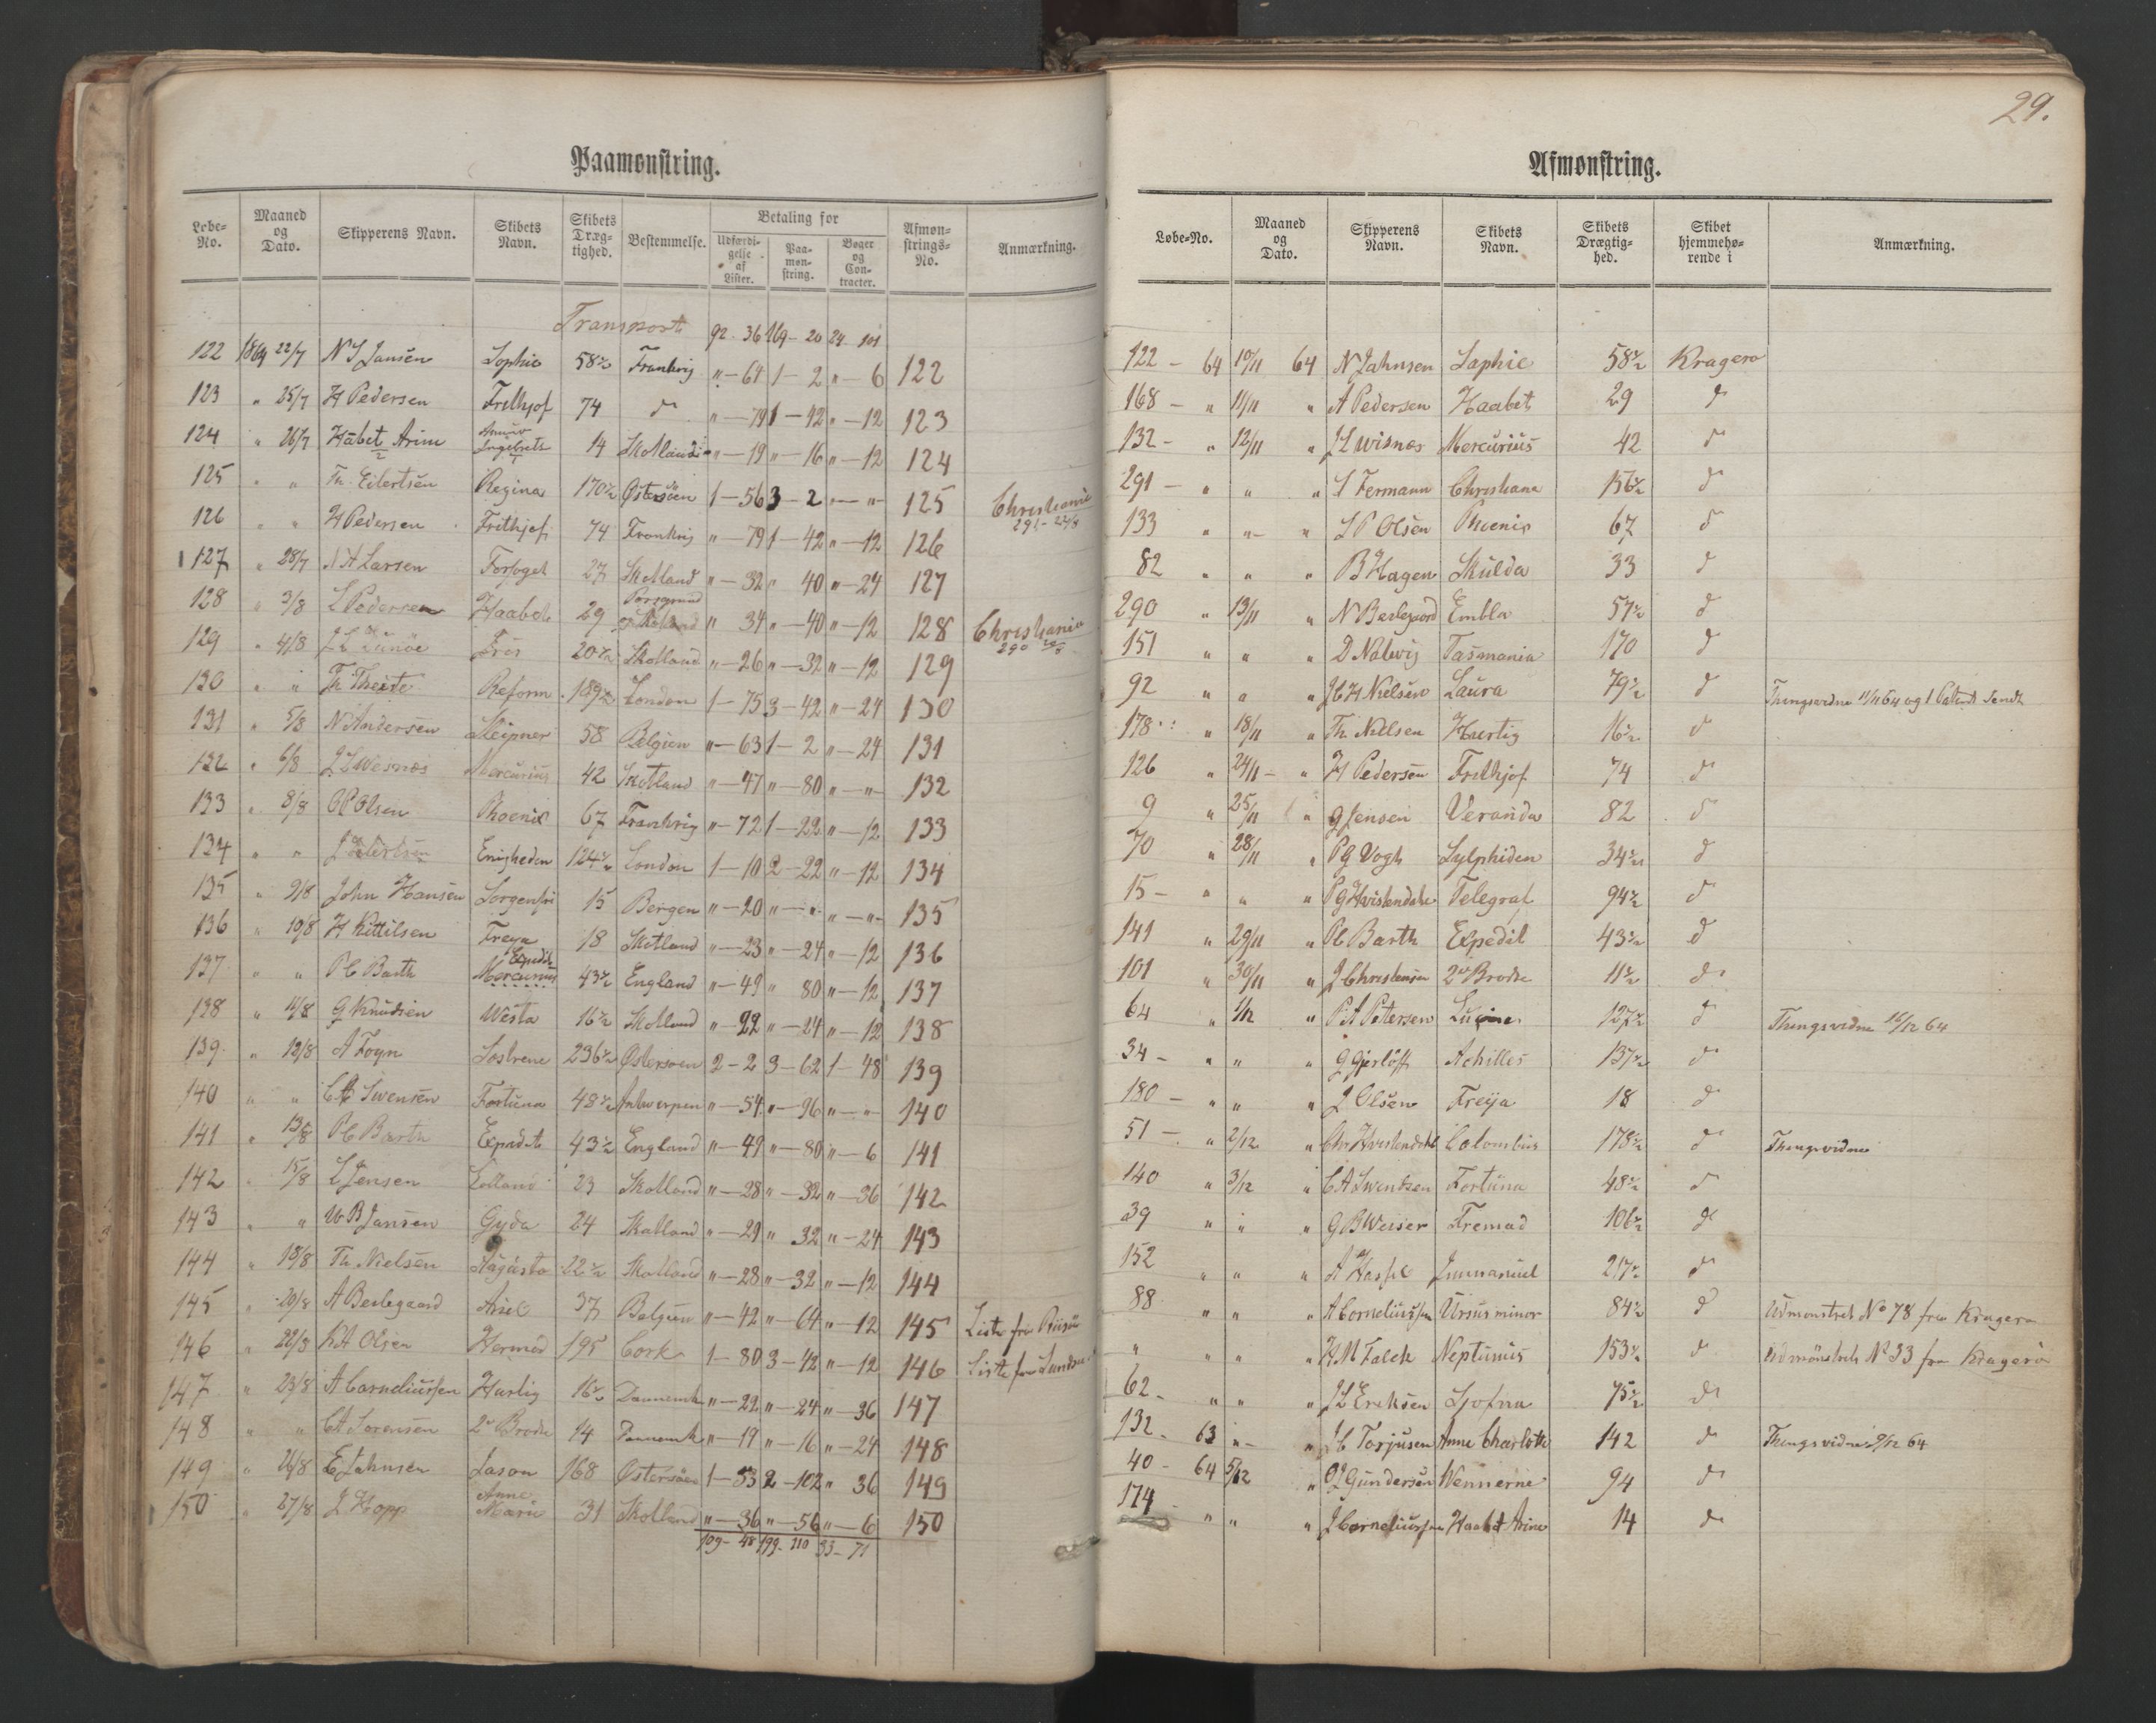 Paamønstring.
Løbe-No. | Maaned og Dato. | Skipperens Navn. | Skibets Navn. | Skibets Dræg-tighed. | Bestemmelse. | Betaling for | Udfærdi-gelse af Lister. | Paa-møn-string. | Bøger og Con-tracter. | Afmøn-strings-No. | Anmærkning.
Transport 92 - 36 169 - 20 24 - 101
122 1864 22/7 N J Jansen Sophie 58½ Frankrig " - 64 1 - 2 " - 6 122
123 " 25/7 H Pedersen Frithjof 74 d " - 79 1 - 42 " - 12 123
124 " 26/7 Håbet Arine 14 Skotland " - 19 " - 16 " - 12 124
125 " " Th. Eilertsen Regina 170½ Østersöen 1 - 56 3 - 2 " - " 125 Christiania
291 - 22/8
126 " " H Pedersen Frithjof 74 Frankrig " - 79 1 - 42 " - 12 126
127 " 28/7 A Larsen Forsøget 27 Skotland " - 32 " 40 " - 24 127
128 " 3/8 L Pedersen Haabet 29 Porsgrund Skotland " 34 " - 40 " - 12 128 Christiania
290
129 " 4/8 20½ Skotland " - 26 " - 32 " - 12 129
130 " " Th Theiste Reform 189½ London 1 - 75 3 - 42 " - 24 130
131 " 5/8 N Andersen Sleipner 58 Belgien " - 63 1 - 2 " - 24 131
132 " 6/8 J L Wesnæs Mercurius 42 Skotland " - 47 " - 80 " - " 132
133 " 8/8 O P Olsen Phoenix 67 Frankrig " - 72 1 - 22 " - 12 133
134 " " Enigheden 124½ London 1 - 10 2 - 22 " - 12 134
135 " 9/8 John Hansen Sorgenfri 15 Bergen " - 20 " - " " - " 135
136 " 10/8 H Kittilsen Freya 18 Skotland " - 23 " - 24 " - 12 136
137 " " P C Barth Expedit Mercurius 43½ England " - 49 " 80 " - 12 137
138 " 11/8 G Knudsen Westa 16½ Skotland " - 22 " - 24 " - 12 138
139 " 12/8 A Foyn Søstrene 236½ Østersoen 2 - 2 3 - 62 1 - 48 139
140 " " C A Swensen Fortuna 48½ Antwerpen " - 54 " - 96 " - " 140
141 " 13/8 P C Barth Expedit 43½ England " - 49 " - 80 " - 6 141
142 " 15/8 L Jensen 23 Skotland " - 28 " - 32 " - 36 142
143 " " W B Jansen Gyda 24 Skotland " - 29 " 32 " - 24 143
144 " 18/8 Th. Nielsen Augusta 22½ Skotland " - 28 " - 32 " - 12 144
145 " 20/8 A Beslegaard Ariel 37 Belgien " - 42 " - 64 " - 12 145 Liste fra Riisør
146 " 22/8 K A Olsen Hermod 195 Cork 1 - 80 3 - 42 " - 12 146 Liste fra
147 " 23/8 A Corneliussen Hurtig 16½ Danmark " - 22 " - 24 " - 36 147
148 " " C A Sorensen 2de Brodre 14 Danmark " - 19 " - 16 " - 24 148
149 " 26/8 E Jahnsen Jason 168 Østersöen 1 - 53 2 - 102 " 36 149
150 " 27/8 J Hopp Anne Marie 31 Skotland " - 36 " - 56 " - 6 150
109 - 48 199 - 110 33 - 71
29.
Afmønstring.
Løbe-No. | Maaned og Dato. | Skipperens Navn. | Skibets Navn. | Skibets Drægtig-hed. | Skibet hjemmehø-rende i | Anmærkning.
122 - 64 10/11 64 N Jahnsen Saphie 58½ Kragerø
168 - " 11/11 " A Pedersen Haabet 29 d
132 - " 12/11 " J L Wisnæs Mercurius 42 d
291 - " " " S Fermann Christiana 156½ d
133 " " " L P Olsen Phoenix 67 d
82 " " " B Hagen Skulda 33 d
290 " 13/11 " N Beslegaard Embla 57½ d
151 " " " D Natvig Tasmania 170 d
92 " " " J C H Nielsen Laura 79½ d Thingsvidne 11/11 64 og 1 Patent sendt
178 " 18/11 " Th. Nielsen Hurtig 16½ d
126 " 24/11 - " H Pedersen Frithjof 74 d
9 " 25/11 " G Jensen Veranda 82 d
70 " 28/11 " P G Vogh Sylphiden 34½ d
15 - " " " P G Hvistendahl Telegraf 94½ d
141 " 29/11 " P C Barth Expedit 43½ d
101 " 30/11 " J Christensen 2de Brodre 11½ d
64 " 1/12 " P A Petersen Lucine 127½ d Thingsvidne 16/12 64
34 - " " " G Gjerløff Achilles 137½ d
180 - " " " J Olsen Freija 18 d
51 - " 2/12 " Chr Hvistendahl Colombus 178½ d Thingsvidne
140 " 3/12 " C A Swendsen Fortuna 48½ d
39 " " " G B Weiser Fremad 106½ d
152 " " " A Hassel Immanuel 217½ d
88 " " " A Corneliussen Ursus minor 84½ d Udmønstret No 78 fra Kragerø
" " " " H M Falck Neptunus 153½ d Udmønstret No 33 fra Kragerö
62 - " " " J L Eriksen Sjofna 75½ d
132 - 63 " - " J C Torjusen Anne Charlotte 142 d Thingsvidne 9/12 64
40 - 64 5/12 " O J Gundersen Wennerne 94 d
174 - " " " J Corneliussen Haabet Arine 14 d